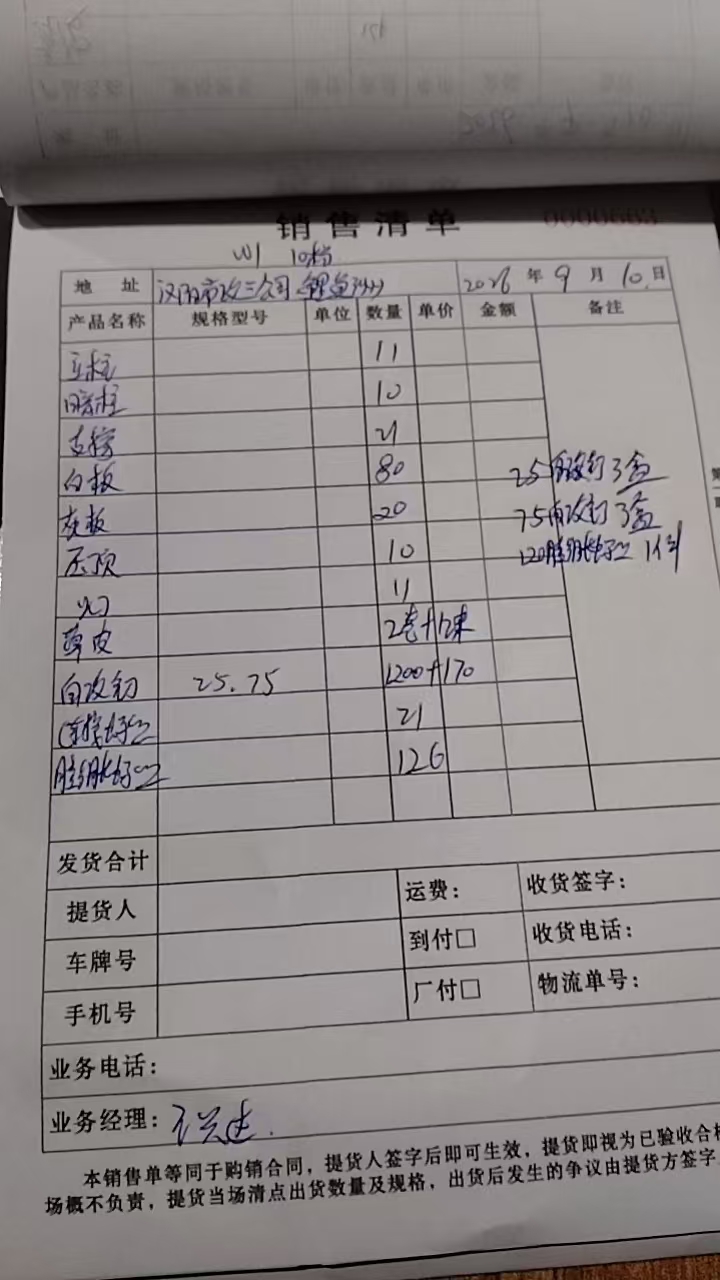 销售清单 0000663
W1 10档
地址 汉阳市政三公司 2026年9月10日
产品名称 规格型号 单位 数量 单价 金额 备注
立柱 11
暗柱 10
支撑 21
白板 80 25自攻钉3盒
灰板 20 75自攻钉3盒
压顶 10 120膨胀螺丝 1件
11
草皮
自攻钉 25.75 1200+170
连接螺丝 21
膨胀螺丝 126
发货合计
提货人 运费： 收货签字：
车牌号 到付□ 收货电话：
手机号 厂付□ 物流单号：
业务电话：
业务经理：
本销售单等同于购销合同，提货人签字后即可生效，提货即视为已验收合格
场概不负责，提货当场清点出货数量及规格，出货后发生的争议由提货方签字